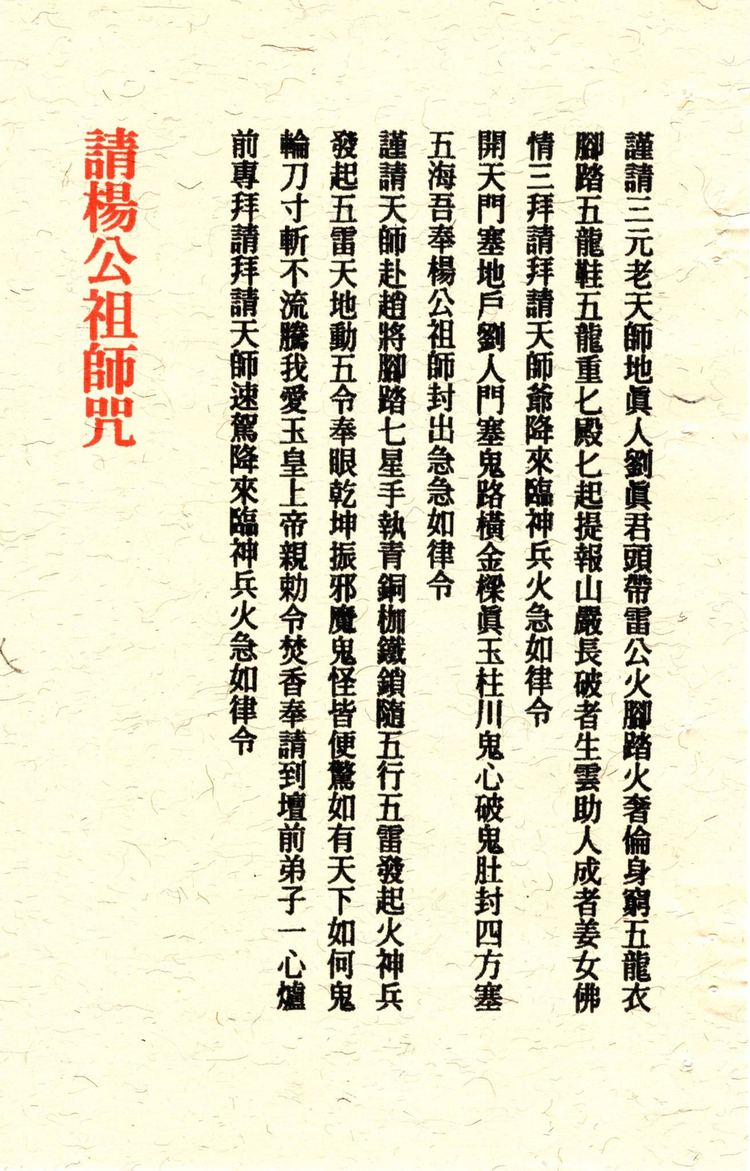 謹請三元老天師地眞人劉眞君頭帶雷公火腳踏火奢倫身窮五龍衣
腳踏五龍鞋五龍重匕殿匕起提報山嚴長破者生雲助人成者姜女佛
情三拜請拜請天師爺降來臨神兵火急如律令
開天門塞地戶劉人門塞鬼路橫金樑眞玉柱川鬼心破鬼肚封四方塞
五海吾奉楊公祖師封出急急如律令
謹請天師赴趙將腳踏七星手執青銅枷鐵鎖隨五行五雷發起火神兵
發起五雷天地動五令奉眼乾坤振邪魔鬼怪皆便驚如有天下如何鬼
輪刀寸斬不流騰我愛玉皇上帝親勅令焚香奉請到壇前弟子一心爐
前專拜請拜請天師速駕降來臨神兵火急如律令
請楊公祖師咒